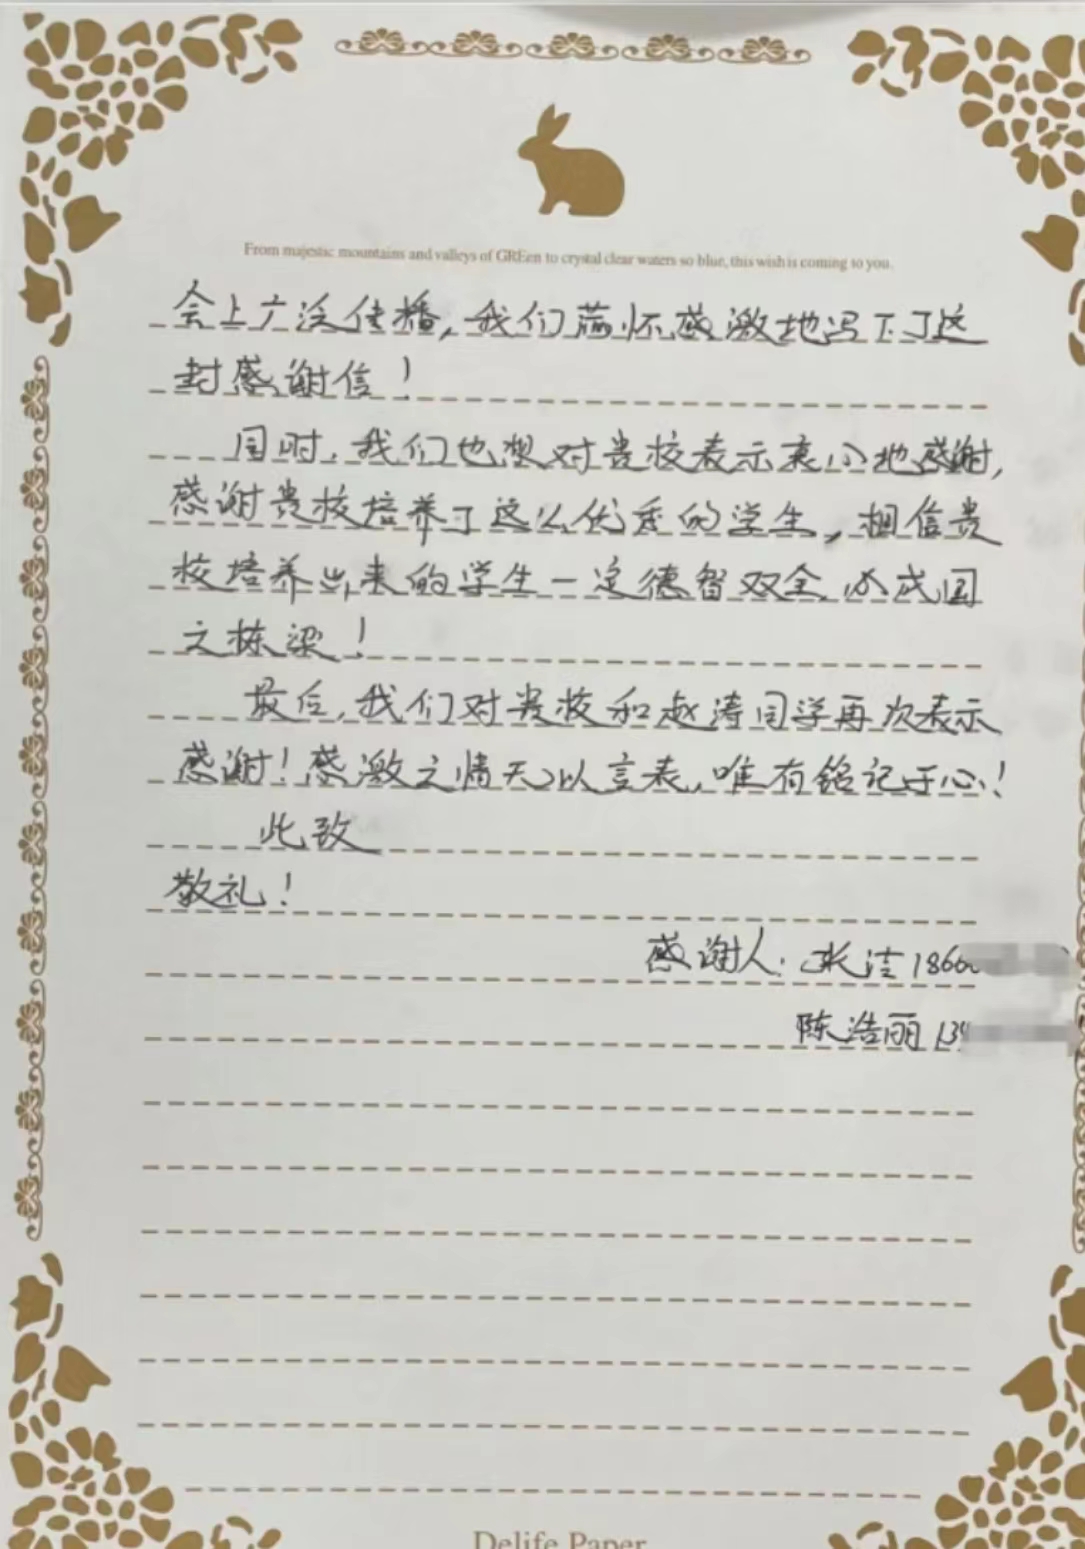 From majestic mountains and valleys of GREen to crystal clear waters so blue, this wish is coming to you.
会上广泛传播,我们满怀感激地写下了这
封感谢信!
同时,我们也想对贵校表示衷心地感谢,
感谢贵校培养了这么优秀的学生,相信贵
校培养出来的学生一定德智双全,必成国
之栋梁!
最后,我们对贵校和赵涛同学再次表示
感谢!感激之情无以言表,唯有铭记于心!
此致
敬礼!
感谢人:张洁 186
陈浩丽 139
Delife Paper